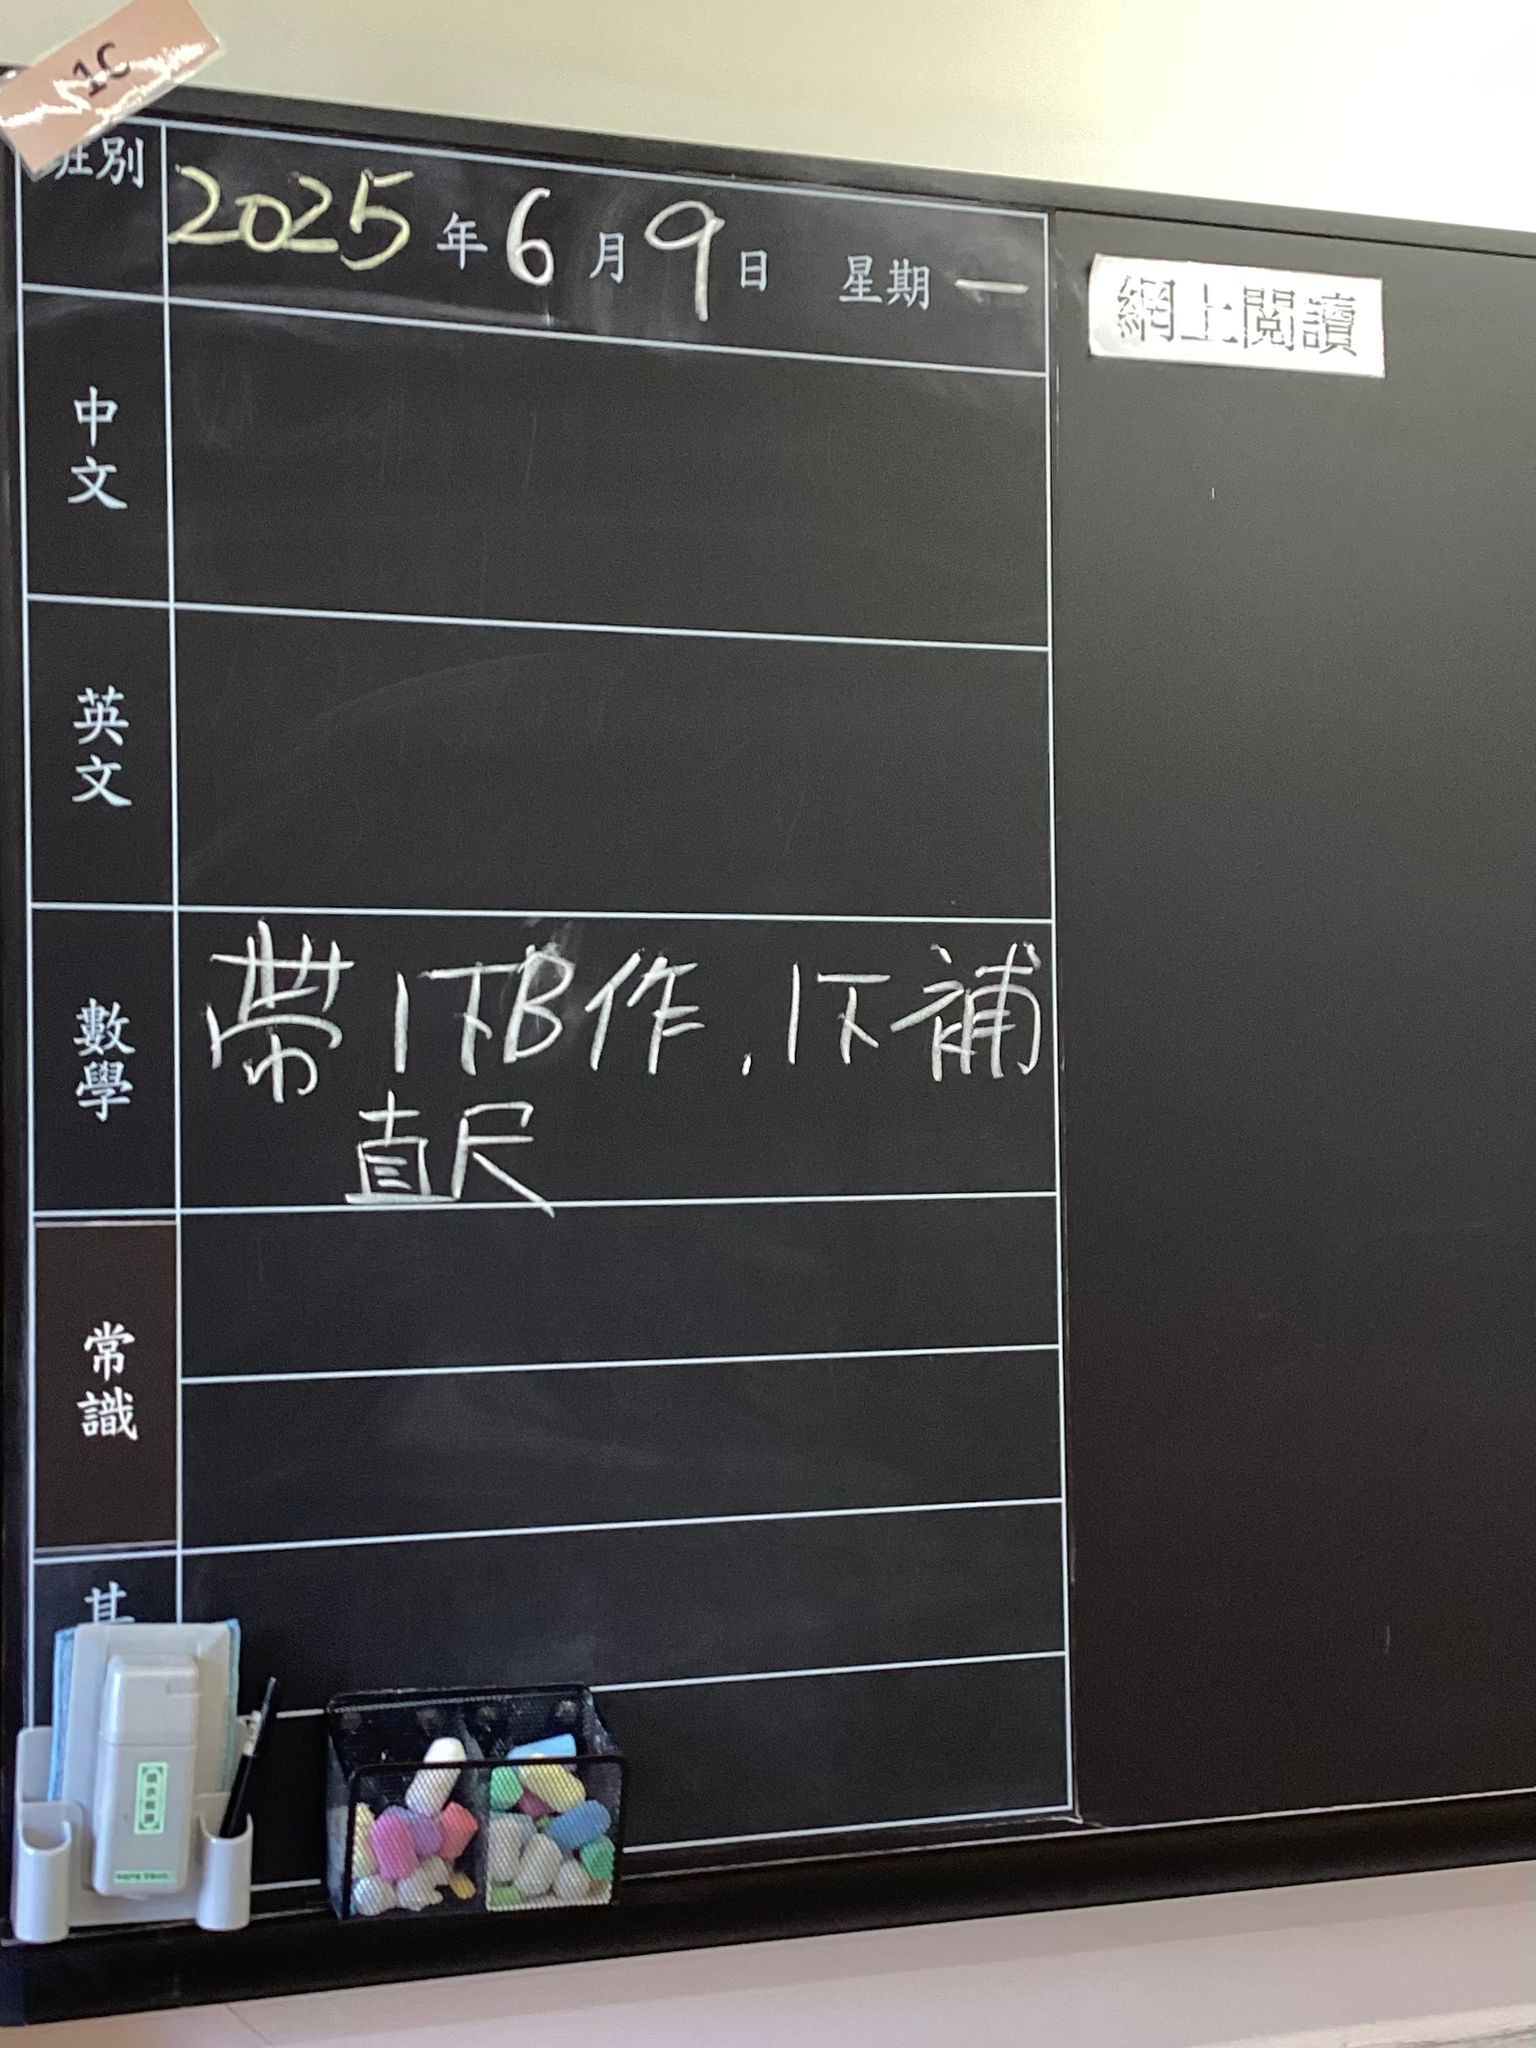 1C
班別
2025年6月9日 星期一
網上閱讀
中文
英文
數學
帶1下B作,1下補
直尺
常識